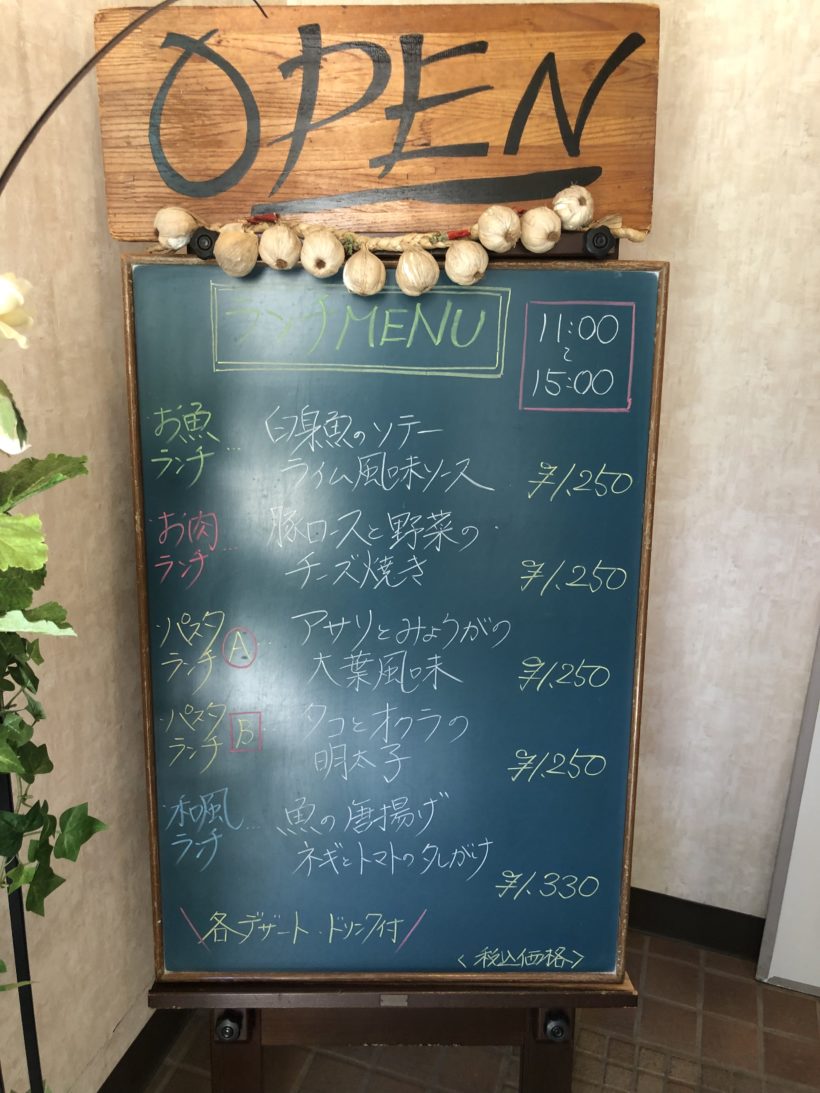 OPEN
ランチMENU
11:00
～
15:00
お魚
ランチ…
白身魚のソテー
ライム風味ソース
¥1,250
お肉
ランチ…
豚ロースと野菜の
チーズ焼き
¥1,250
パスタ
ランチ A…
アサリとみょうがの
大葉風味
¥1,250
パスタ
ランチ B
タコとオクラの
明太子
¥1,250
和風
ランチ…
魚の唐揚げ
ネギとトマトのタレがけ
¥1,330
\各デザート・ドリンク付/
<税込価格>